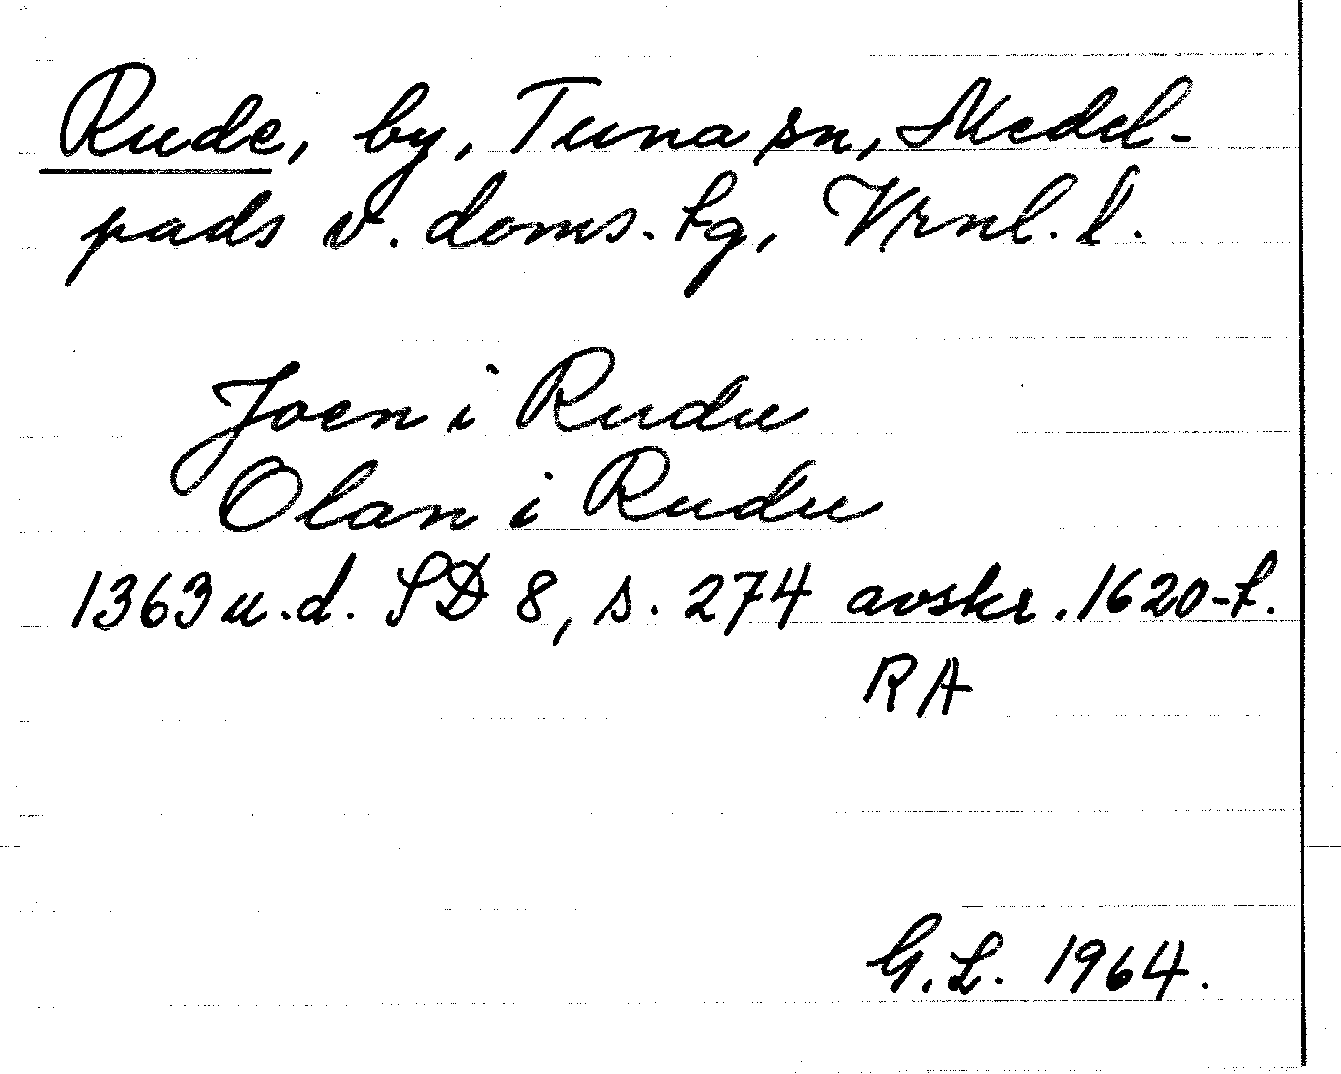 Rude, by, Tuna sn, Medel-
pads v. doms. tg, Vrnl. l.
Joen i Rudu
Olan i Rudu
1363 u.d. SD 8, s. 274 avskr. 1620-t.
RA
G.L. 1964.